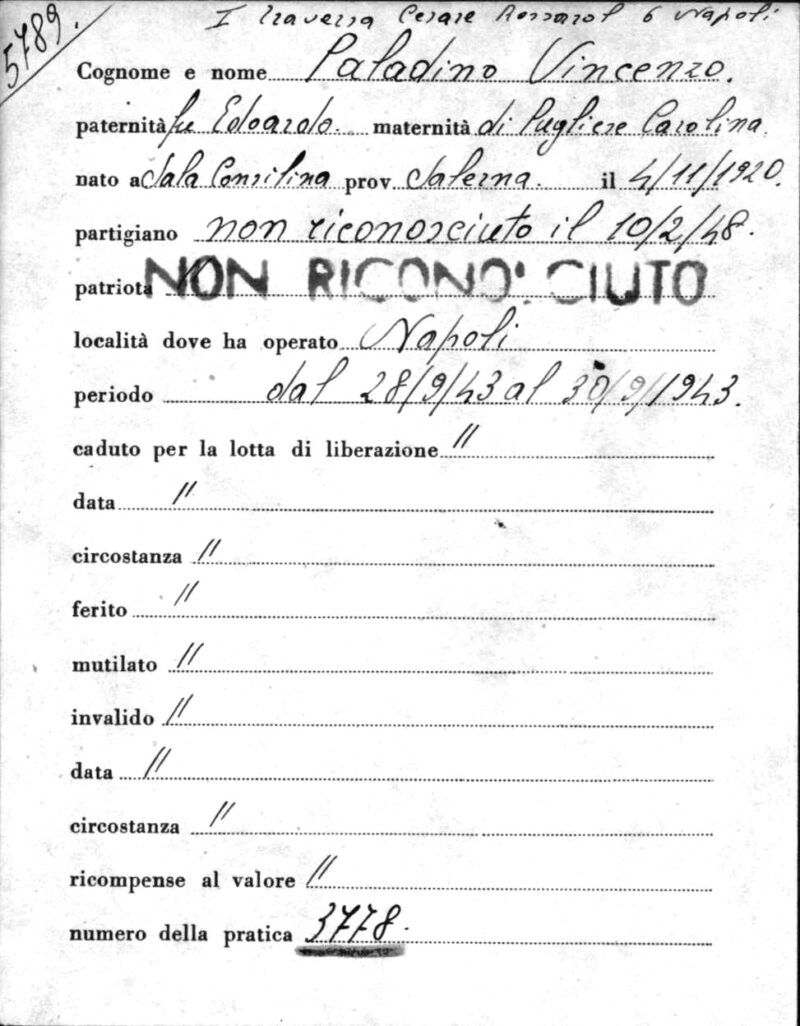 5789.
I traversa Cesare Rossarol 6 Napoli
Cognome e nome Paladino Vincenzo.
paternità fu Edoardo. maternità di Pugliese Carolina.
nato a Sala Consilina prov Salerna. il 4/11/1920.
partigiano non riconosciuto il 10/2/48.
patriota NON RICONO'CIUTO
località dove ha operato Napoli
periodo dal 28/9/43 al 30/9/1943.
caduto per la lotta di liberazione "
data "
circostanza "
ferito "
mutilato "
invalido "
data "
circostanza "
ricompense al valore "
numero della pratica 3778.